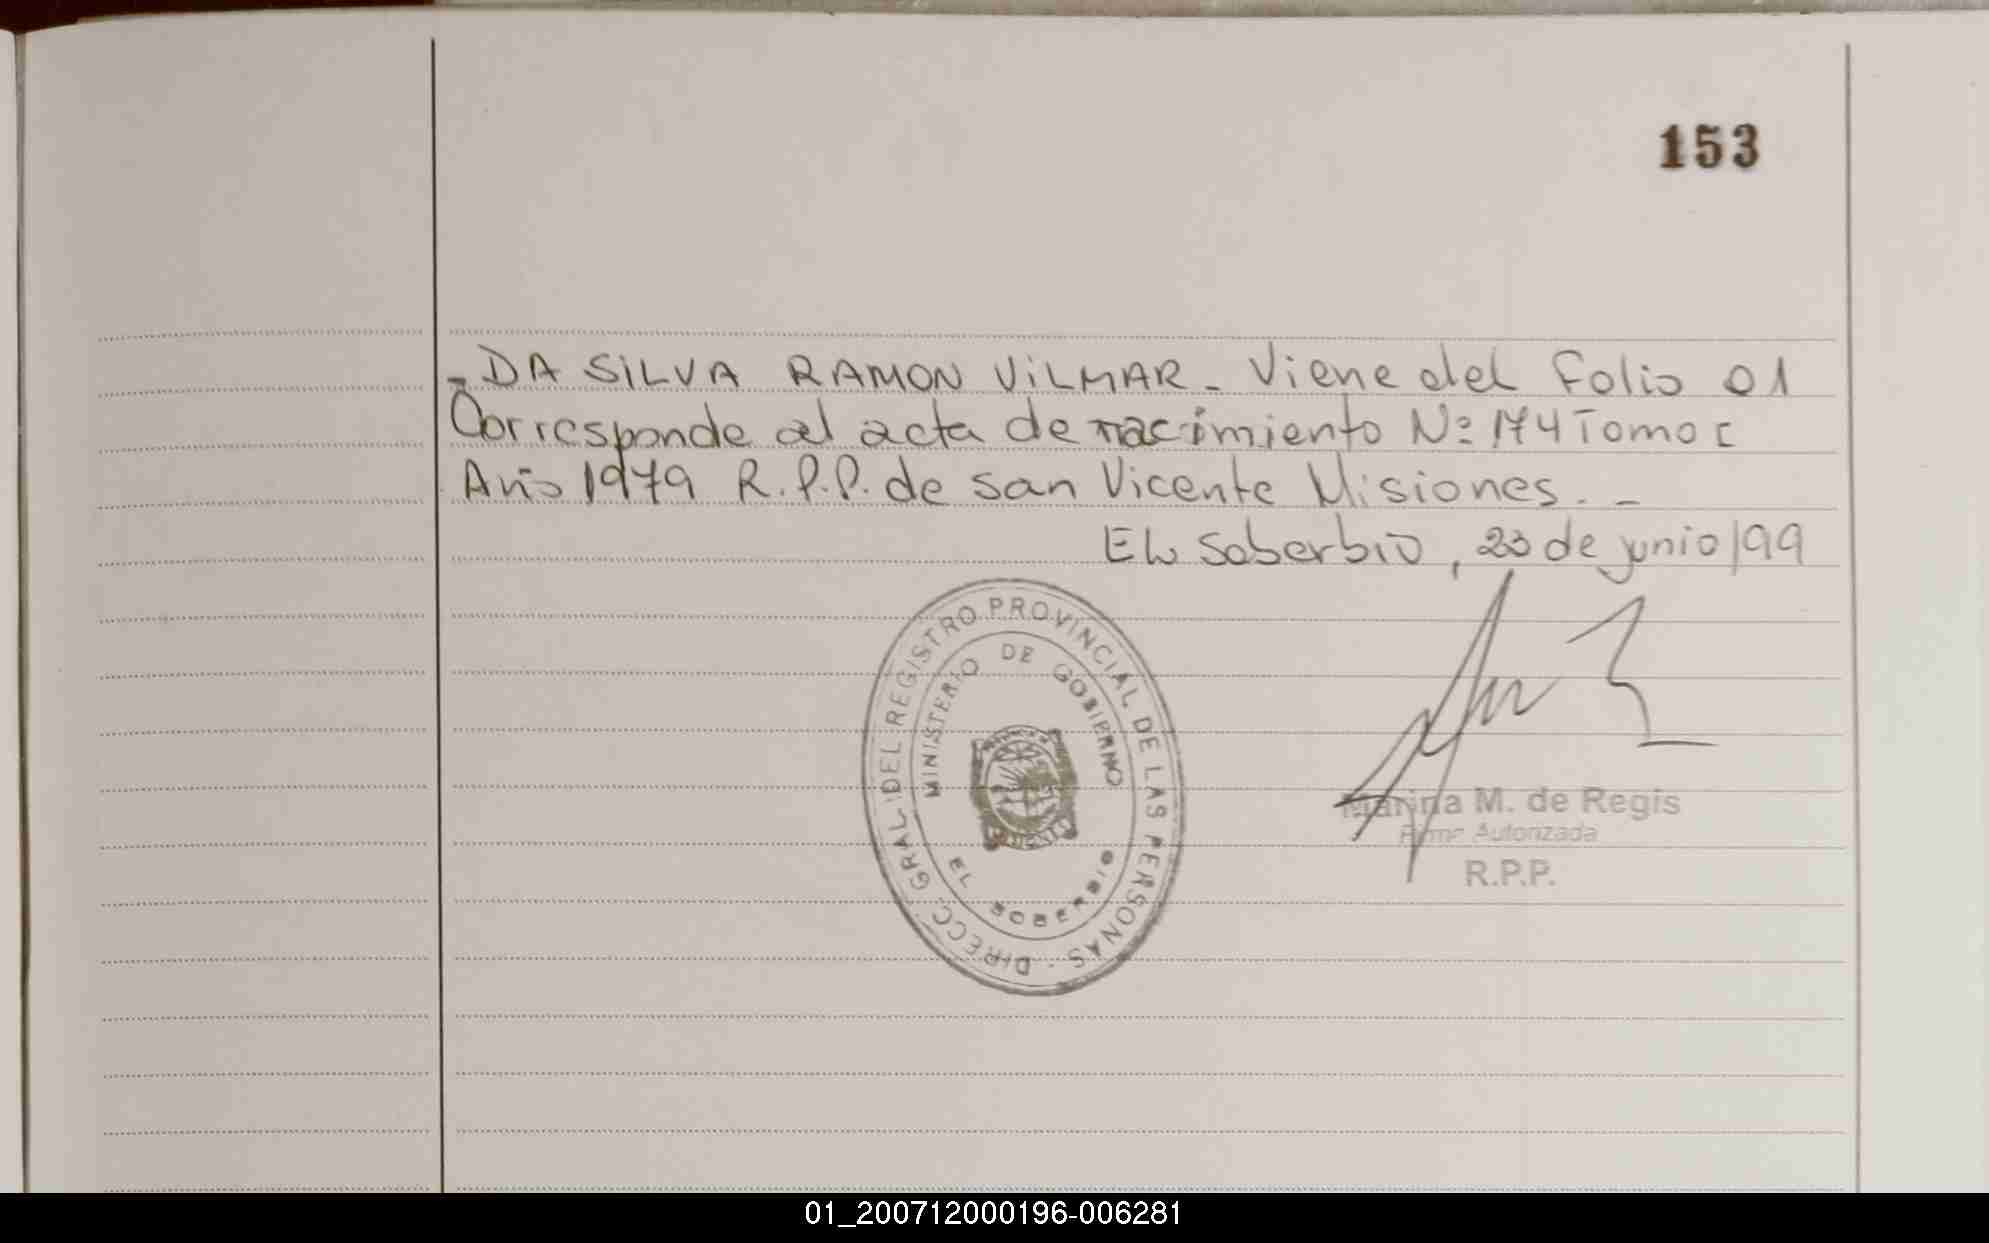 153
- DA SILVA RAMON VILMAR - Viene del Folio 01
Corresponde al acta de nacimiento Nº 174 Tomo I
Año 1979 R.P.P. de San Vicente Misiones. -
EL Soberbio, 23 de junio/99
DIRECC. GRAL. DEL REGISTRO PROVINCIAL DE LAS PERSONAS -
MINISTERIO DE GOBIERNO
EL SOBERBIO
Marina M. de Regis
Firma Autorizada
R.P.P.
01_200712000196-006281